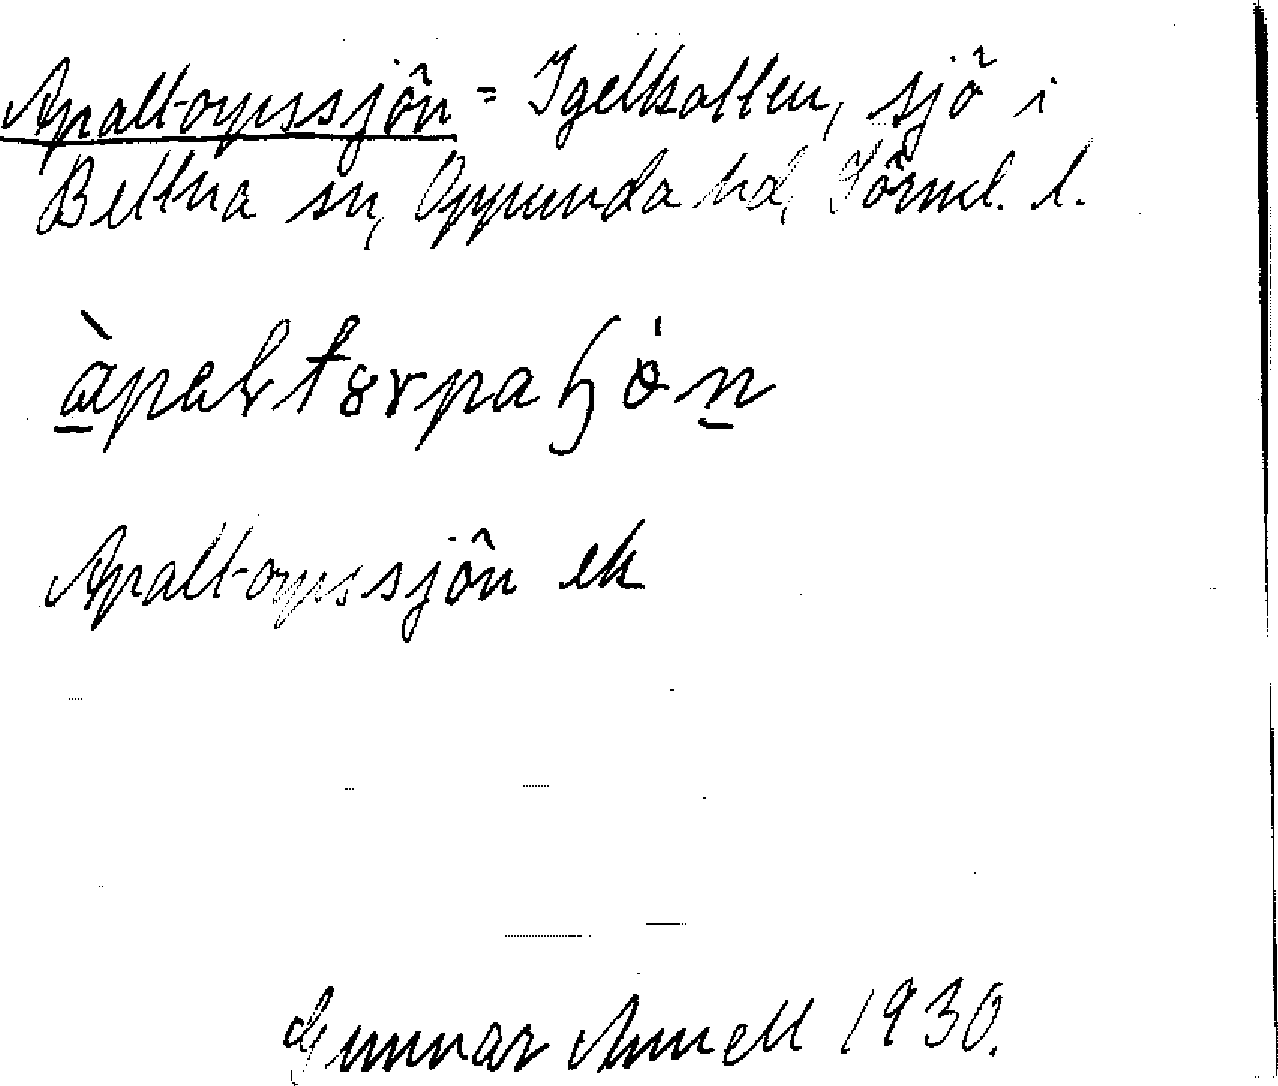 Apaltorpssjön = Igelkotten, sjö i
Bettna sn, Oppunda hd, Sörml. l.
Apaltorpssjön ek
Gunnar Annell 1930.